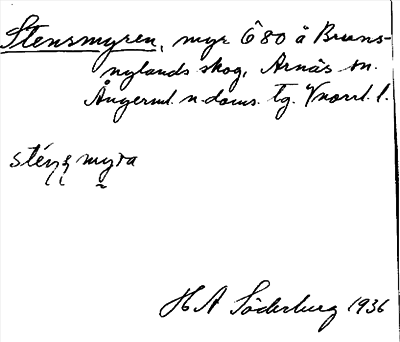 Stensmyren, myr Ö 80 å Bruns-
nylands skog, Arnäs sn.
Ångerml. n. doms. tg. Vnorrl. l.
sténs myra
H A Söderburg 1936